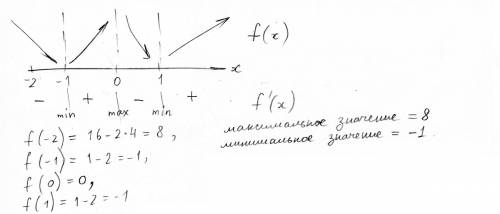 f(x)
-2 -1 0 1 x
- + - +
min max min
f'(x)
f(-2) = 16-2·4 = 8,
f(-1) = 1-2 = -1,
f(0) = 0,
f(1) = 1-2 = -1
максимальное значение = 8
минимальное значение = -1.